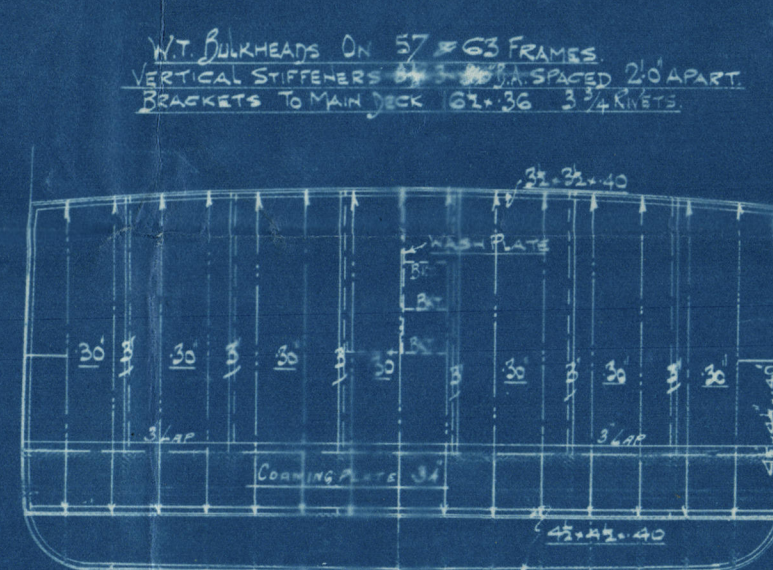 W.T. BULKHEADS ON 57 & 63 FRAMES.
VERTICAL STIFFENERS B.A. SPACED 2'.0" APART.
BRACKETS TO MAIN DECK 3 3/4 RIVETS.
3½×3½×.40
WASH PLATE
BKT
BKT
BKT
.30" 3" .30" 3" .30" 3" .30 3" .30" 3" .30" 3" .30"
3" LAP 3" LAP
COAMING PLATE
4½×4½×.40